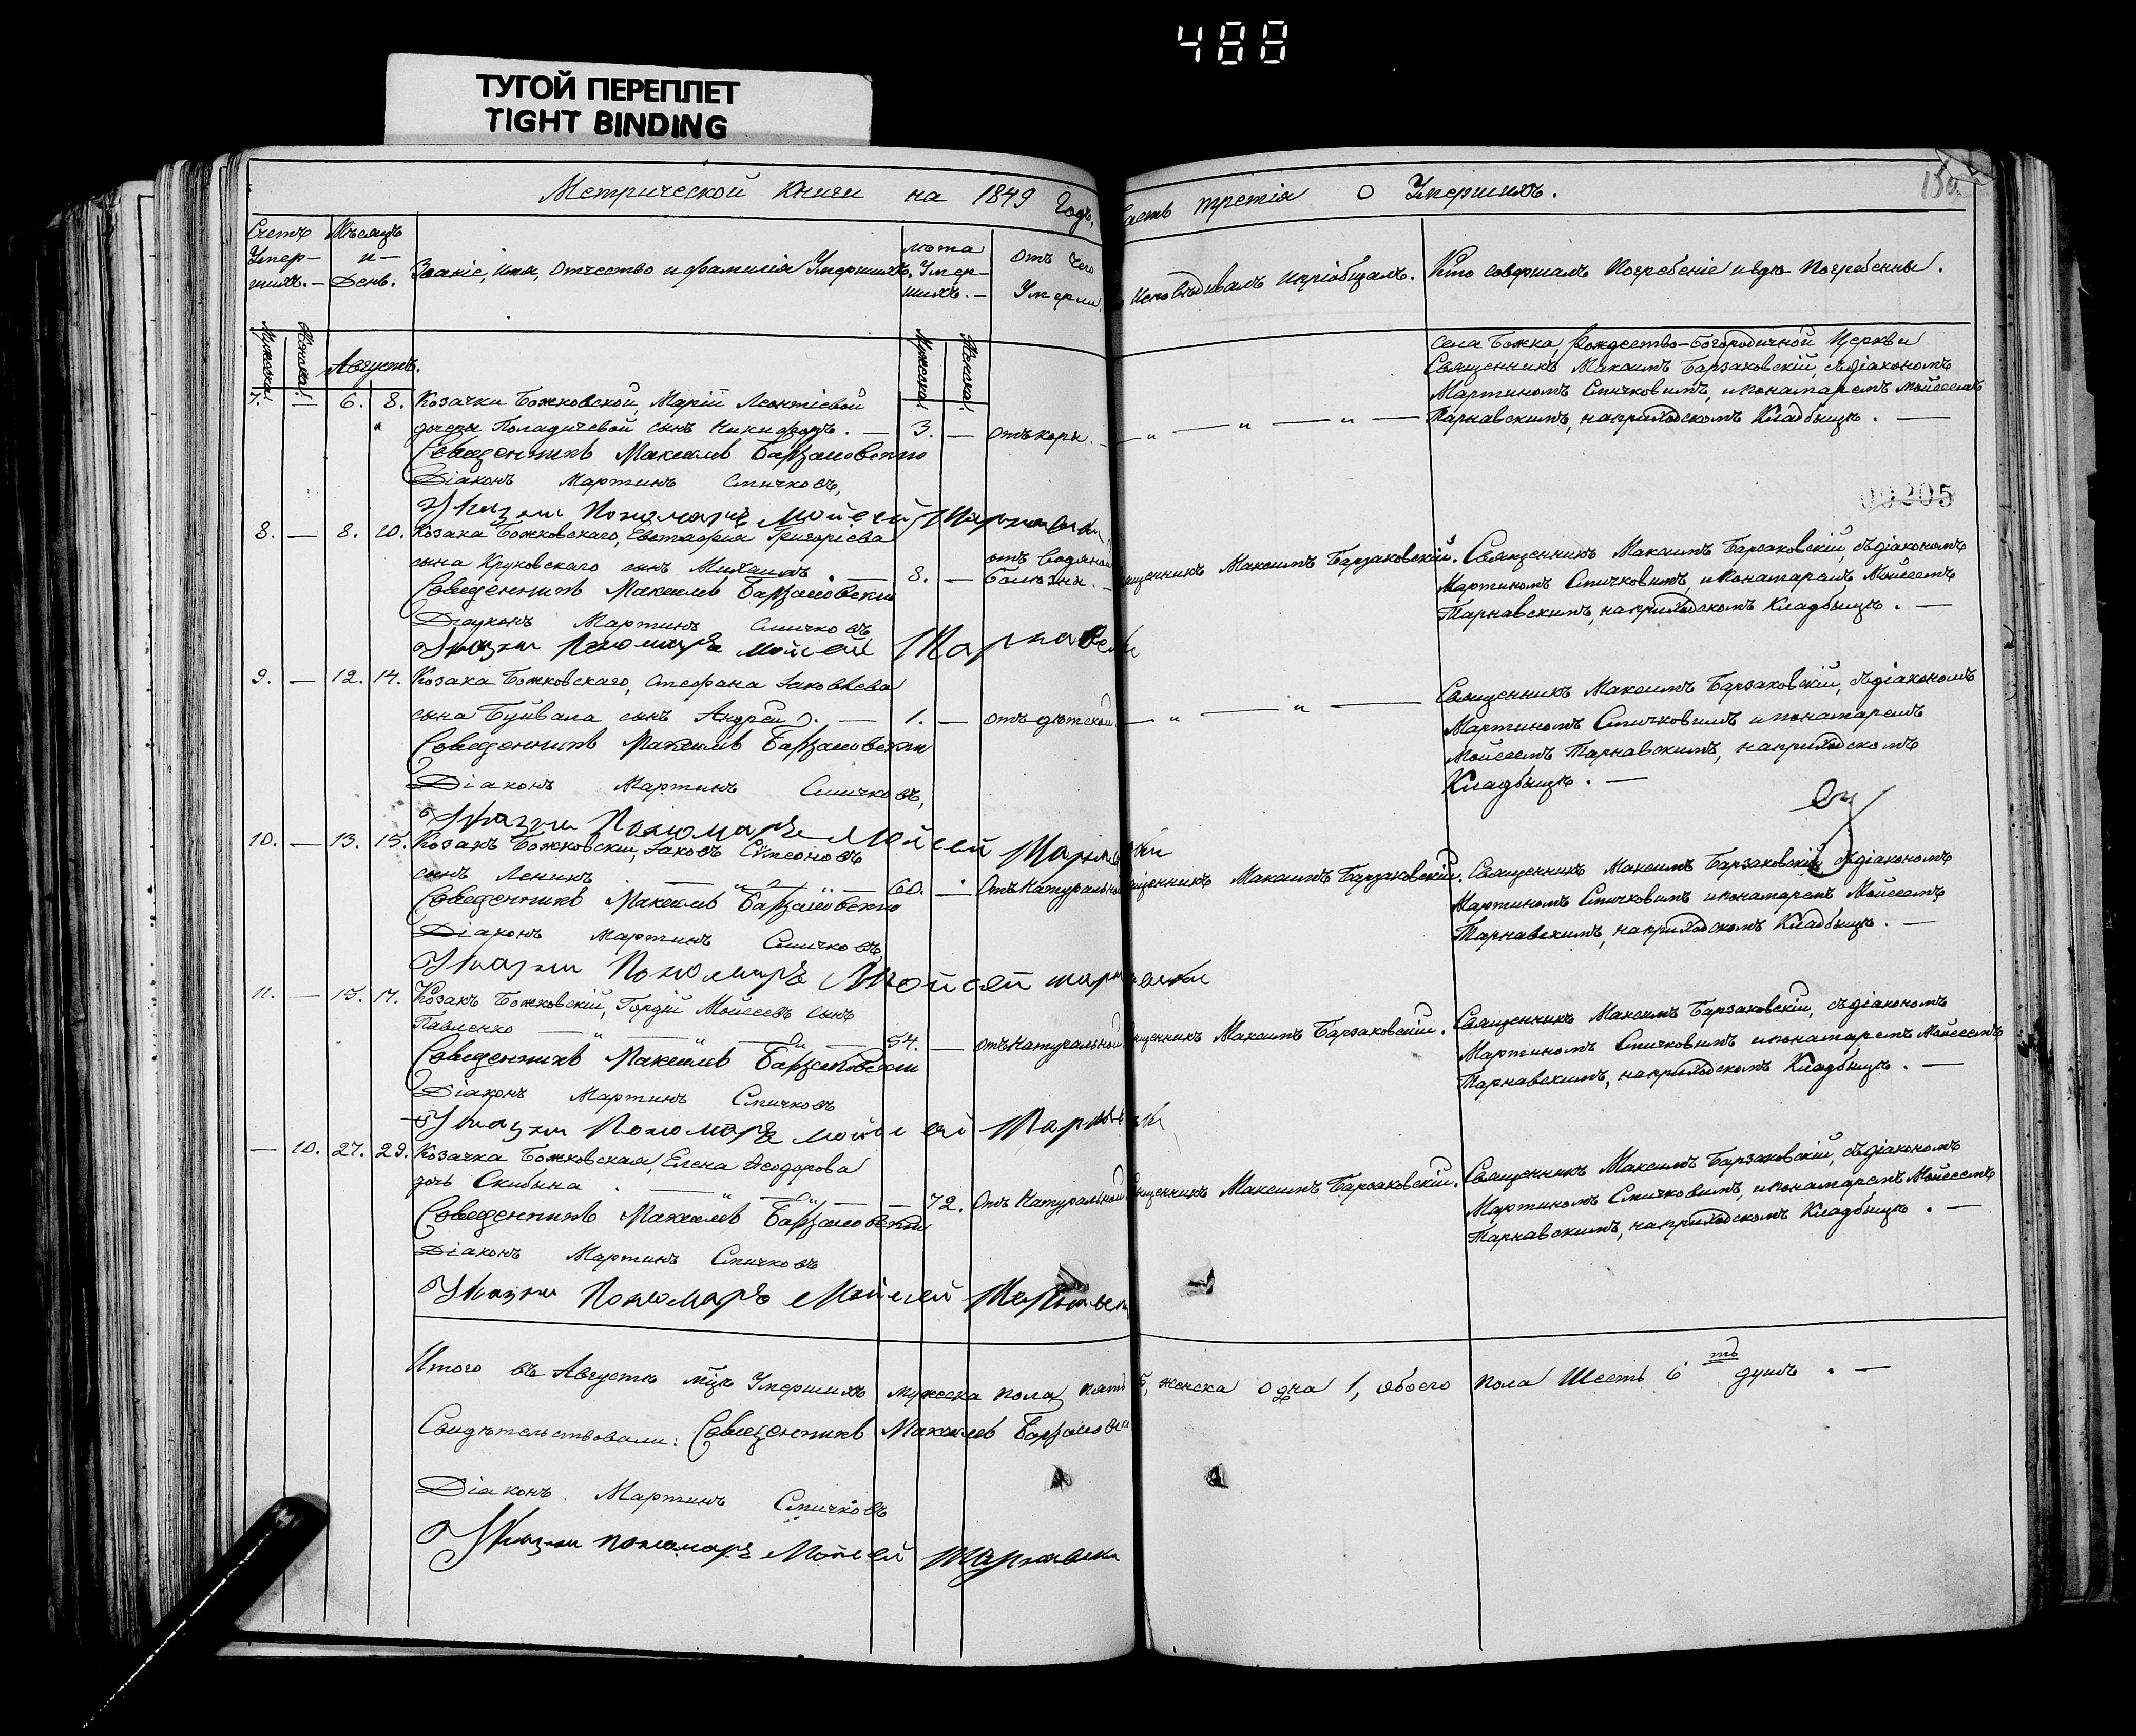 488
ТУГОЙ ПЕРЕПЛЕТ
TIGHT BINDING
Метрической Книги на 1849 Годъ, Часть третія О Умершихъ.
Счетъ Умер-шихъ.—
Мѣсяцъ и День.
Званіе, имя, отчество и фамилія Умершихъ.
Лѣта Умер-шихъ.—
Отъ чего Умерли
исповѣдывалъ и пріобщалъ.
Кто совершалъ Погребеніе и гдѣ Погребенны.
Мужеска.
Женска.
Августъ.
Мужеска.
Женска.
Села Божка, Рождество-Богородичной Церкви
7. — 6. 8. Козачки Божковской, Маріи Леонтіевой
дочери сынъ Никифоръ. — 3. — отъ кори. —
Священникъ Максимъ Барзаковскій, съ діакономъ
Мартиномъ Спичковимъ, и понамаремъ Мойсеемъ
Тарнавскимъ, на приходскомъ Кладбищѣ. —
Священникъ Максимъ Барзаковскій
Діаконъ Мартинъ Спичковъ,
Пономарь Мойсей Тарнавскій
00205
8. — 8. 10. Козака Божковскаго, Евстафія Григоріева
сына Круковскаго сынъ Михаилъ. — 8. — отъ водяной болѣзни. —
Священникъ Максимъ Барзаковскій.
Священникъ Максимъ Барзаковскій, съ діакономъ
Мартиномъ Спичковимъ, и понамаремъ Мойсеемъ
Тарнавскимъ, на приходскомъ Кладбищѣ. —
Священникъ Максимъ Барзаковскій
Діаконъ Мартинъ Спичковъ
Пономарь Мойсей Тарнавскій
9. — 12. 14. Козака Божковскаго, Стефана Іаковлева
сына Буйвала сынъ Андрей. — 1. — отъ дѣтской.
Священникъ Максимъ Барзаковскій, съ діакономъ
Мартиномъ Спичковимъ и понамаремъ
Мойсеемъ Тарнавскимъ, на приходскомъ
Кладбищѣ. —
Священникъ Максимъ Барзаковскій
Діаконъ Мартинъ Спичковъ,
Пономарь Мойсей Тарнавскій
10. — 13. 15. Козакъ Божковскій, Іаковъ Сѵмеоновъ
сынъ — 60. — Отъ Натуральной
Священникъ Максимъ Барзаковскій.
Священникъ Максимъ Барзаковскій, съ діакономъ
Мартиномъ Спичковимъ и понамаремъ Мойсеемъ
Тарнавскимъ, на приходскомъ Кладбищѣ. —
Священникъ Максимъ Барзаковскій
Діаконъ Мартинъ Спичковъ
Пономарь Мойсей Тарнавскій
11. — 15. 17. Козакъ Божковскій, Гордій Мойсеевъ сынъ
Павленко — 54. — отъ Натуральной
Священникъ Максимъ Барзаковскій.
Священникъ Максимъ Барзаковскій, съ діакономъ
Мартиномъ Спичковимъ и понамаремъ Мойсеемъ
Тарнавскимъ, на приходскомъ Кладбищѣ. —
Священникъ Максимъ Барзаковскій
Діаконъ Мартинъ Спичковъ
Пономарь Мойсей Тарнавскій
— 10. 27. 29. Козачка Божковская, Елена Ѳеодорова
дочь Скибина — 72. Отъ Натуральной
Священникъ Максимъ Барзаковскій.
Священникъ Максимъ Барзаковскій, съ діакономъ
Мартиномъ Спичковимъ, и понамаремъ Мойсеемъ
Тарнавскимъ, на приходскомъ Кладбищѣ. —
Священникъ Максимъ Барзаковскій
Діаконъ Мартинъ Спичковъ
Пономарь Мойсей Тарнавскій
Итого въ Августѣ мцѣ Умершихъ мужеска пола пять 5, женска одна 1, обоего пола Шесть 6 душъ. —
Свидѣтельствовали: Священникъ Максимъ Барзаковскій
Діаконъ Мартинъ Спичковъ
Пономарь Мойсей Тарнавскій